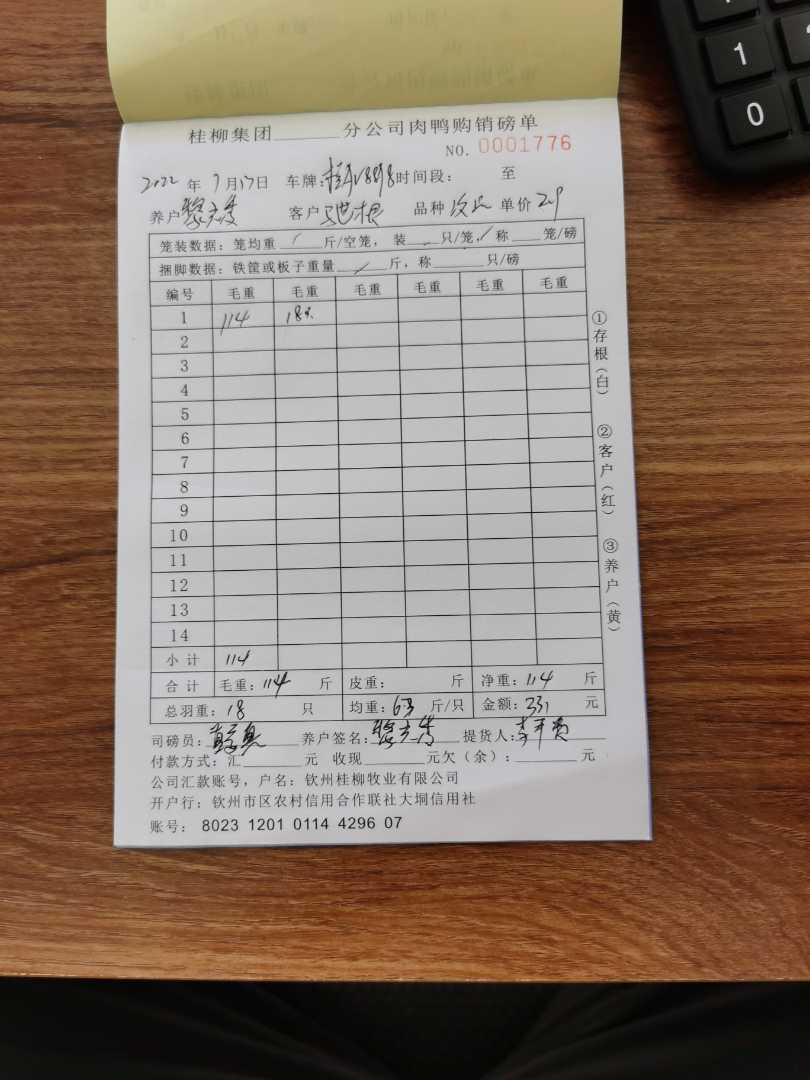 桂柳集团______分公司肉鸭购销磅单
NO. 0001776
2022 年 7 月 17 日 车牌: 时间段: 至
养户 客户 品种 次品 单价 2.9
笼装数据: 笼均重 / 斤/空笼, 装 只/笼, 称 笼/磅
捆脚数据: 铁筐或板子重量 / 斤, 称 只/磅
编号 毛重 毛重 毛重 毛重 毛重 毛重
1 114 18只
2
3
4
5
6
7
8
9
10
11
12
13
14
小计 114
合计 毛重: 114 斤 皮重: 斤 净重: 114 斤
总羽重: 18 只 均重: 6.3 斤/只 金额: 331 元
司磅员: 养户签名: 提货人:
付款方式: 汇______元 收现______元欠(余):______元
公司汇款账号, 户名: 钦州桂柳牧业有限公司
开户行: 钦州市区农村信用合作联社大垌信用社
账号: 8023 1201 0114 4296 07
①存根(白)
②客户(红)
③养户(黄)
1
0